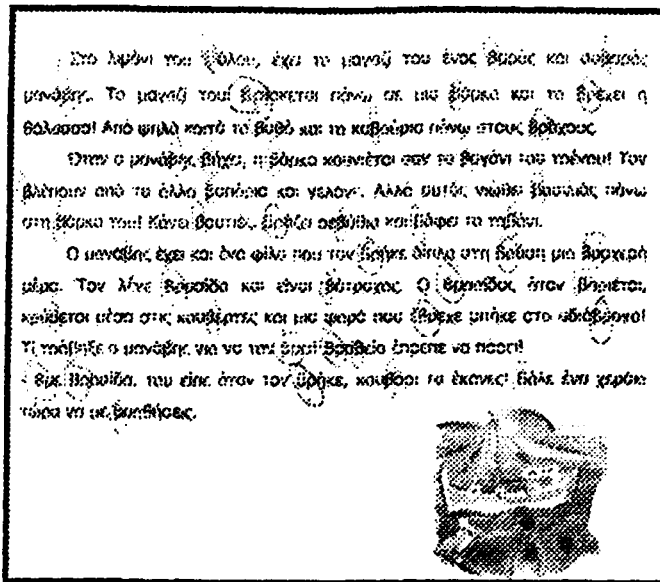 Στο λιμάνι του Βόλου, έχει το μαγαζί του ένας βαρύς και σοβαρός
μανάβης. Το μαγαζί του βρίσκεται πάνω σε μια βάρκα και το βρέχει η
θάλασσα! Από ψηλά κοιτά το βυθό και τα καβούρια πάνω στους βράχους.
Όταν ο μανάβης βήχει, η βάρκα κουνιέται σαν το βαγόνι του τρένου! Τον
βλέπουν από τα άλλα βαπόρια και γελούν. Αλλά αυτός νιώθει βασιλιάς πάνω
στη βάρκα του! Κάνει βουτιές, βράζει ρεβύθια και βάφει το ταβάνι.
Ο μανάβης έχει και ένα φίλο που τον βρήκε δίπλα στη βρύση μια βροχερή
μέρα. Τον λένε Βαρσίδα και είναι βάτραχος. Ο Βαρσίδας όταν βαριέται,
κρύβεται μέσα στις κουβέρτες και μια φορά που έβρεχε μπήκε στο αδιάβροχο!
Τι τράβηξε ο μανάβης για να τον βρει! Βραβείο έπρεπε να πάρει!
- Βρε Βαρσίδα, του είπε όταν τον βρήκε, κουβάρι τα έκανες! Βάλε ένα χεράκι
τώρα να με βοηθήσεις.